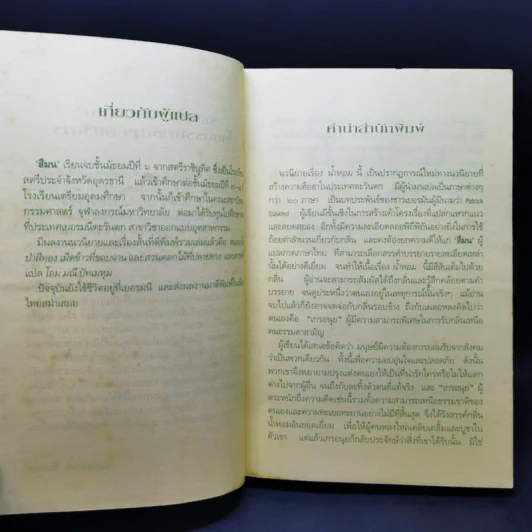 เกี่ยวกับผู้แปล
'สีมน' เรียนจบชั้นมัธยมปีที่ ๖ จากสตรีราชินูทิศ ซึ่งเป็นโรงเรียน
สตรีประจำจังหวัดอุดรธานี แล้วเข้าศึกษาต่อชั้นมัธยมปีที่ ๗-๘
โรงเรียนเตรียมอุดมศึกษา จากนั้นก็เข้าศึกษาในคณะสถาปัตย
กรรมศาสตร์ จุฬาลงกรณ์มหาวิทยาลัย ต่อมาได้รับทุนไปศึกษา
ที่ประเทศเยอรมนีตะวันตก สาขาวิชาออกแบบอุตสาหกรรม
มีผลงานนวนิยายและเรื่องสั้นที่ตีพิมพ์รวมเล่มแล้วคือ
ปาสีทอง เม็ดข้าวที่ขอบจาน และสวนดอกไม้
แปล โมม มณี ปัทเมหุม
ปัจจุบันยังใช้ชีวิตอยู่ที่เยอรมนี และส่งผลงานมาตีพิมพ์ในเมือง
ไทยสม่ำเสมอ
คำนำสำนักพิมพ์
นวนิยายเรื่อง น้ำหอม นี้ เป็นปรากฏการณ์ใหม่ทางนวนิยายที่
สร้างความฮือฮาในประเทศตะวันตก มีผู้นำมาแปลเป็นภาษาต่างๆ
กว่า ๒๐ ภาษา เป็นบทประพันธ์ของชาวเยอรมันผู้มีนามว่า Patrick
Süskind ผู้เขียนมีชั้นเชิงในการสร้างเค้าโครงเรื่องที่แปลกแหวกแนว
และสยดสยอง อีกทั้งมีความละเอียดลออพิถีพิถันอย่างยิ่งในการใช้
ถ้อยคำสำนวนเกี่ยวกับกลิ่น และคงต้องยกความดีให้แก่ 'สีมน' ผู้
แปลภาคภาษาไทย ที่สามารถเลือกสรรคำบรรยายรายละเอียดเหล่า
นั้นได้อย่างดีเยี่ยม จนทำให้เนื้อเรื่อง น้ำหอม นี้มีสีสันเต็มไปด้วย
กลิ่น ผู้อ่านจะสามารถสัมผัสได้ถึงกลิ่นและรู้สึกคล้อยตามคำ
บรรยาย จนดูประหนึ่งว่าตนเองอยู่ในเหตุการณ์นั้นจริงๆ แม้อ่าน
จบไปแล้วก็ยังอาจจดจ่อกับกลิ่นรอบข้าง ถึงกับเผลอหลงคิดไปว่า
ตนเองคือ "เกรอนุย" ผู้มีความสามารถพิเศษในการรับกลิ่นเหนือ
คนธรรมดาสามัญ
ผู้เขียนได้เสนอข้อคิดว่า มนุษย์มีความต้องการยอมรับจากสังคม
ว่าเป็นพวกเดียวกัน ทั้งนี้เพื่อความอบอุ่นใจและปลอดภัย ดังนั้น
พวกเขาจึงพยายามปรุงแต่งตนเองให้เป็นที่น่ารักใคร่หรือไม่ให้แตก
ต่างไปจากผู้อื่น จนถึงกับละทิ้งตัวตนที่แท้จริง และ "เกรอนุย" ผู้
ตระหนักถึงความคิดเช่นนี้รวมทั้งความสามารถเหนือธรรมชาติของ
ตนเองและความทะเยอทะยานอย่างไม่มีที่สิ้นสุด จึงได้รังสรรค์กลิ่น
น้ำหอมอันยอดเยี่ยม เพื่อให้ผู้คนหลงใหลเคลิบเคลิ้มและบูชาใน
ตัวเขา แต่แล้วเกรอนุยก็กลับประจักษ์ว่าสิ่งที่เขาได้รับนั้น มิใช่